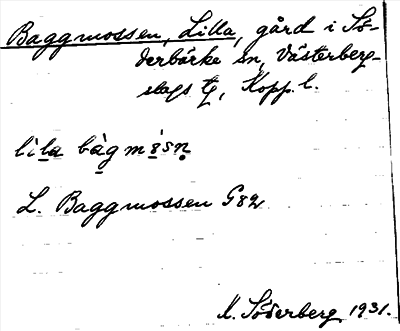 Baggmossen, Lilla, gård i Sö-
derbärke sn, Västerberg-
slags tg, Kopp. l.
lìla bàgmósn
L. Baggmossen G82
M. Söderberg 1931.